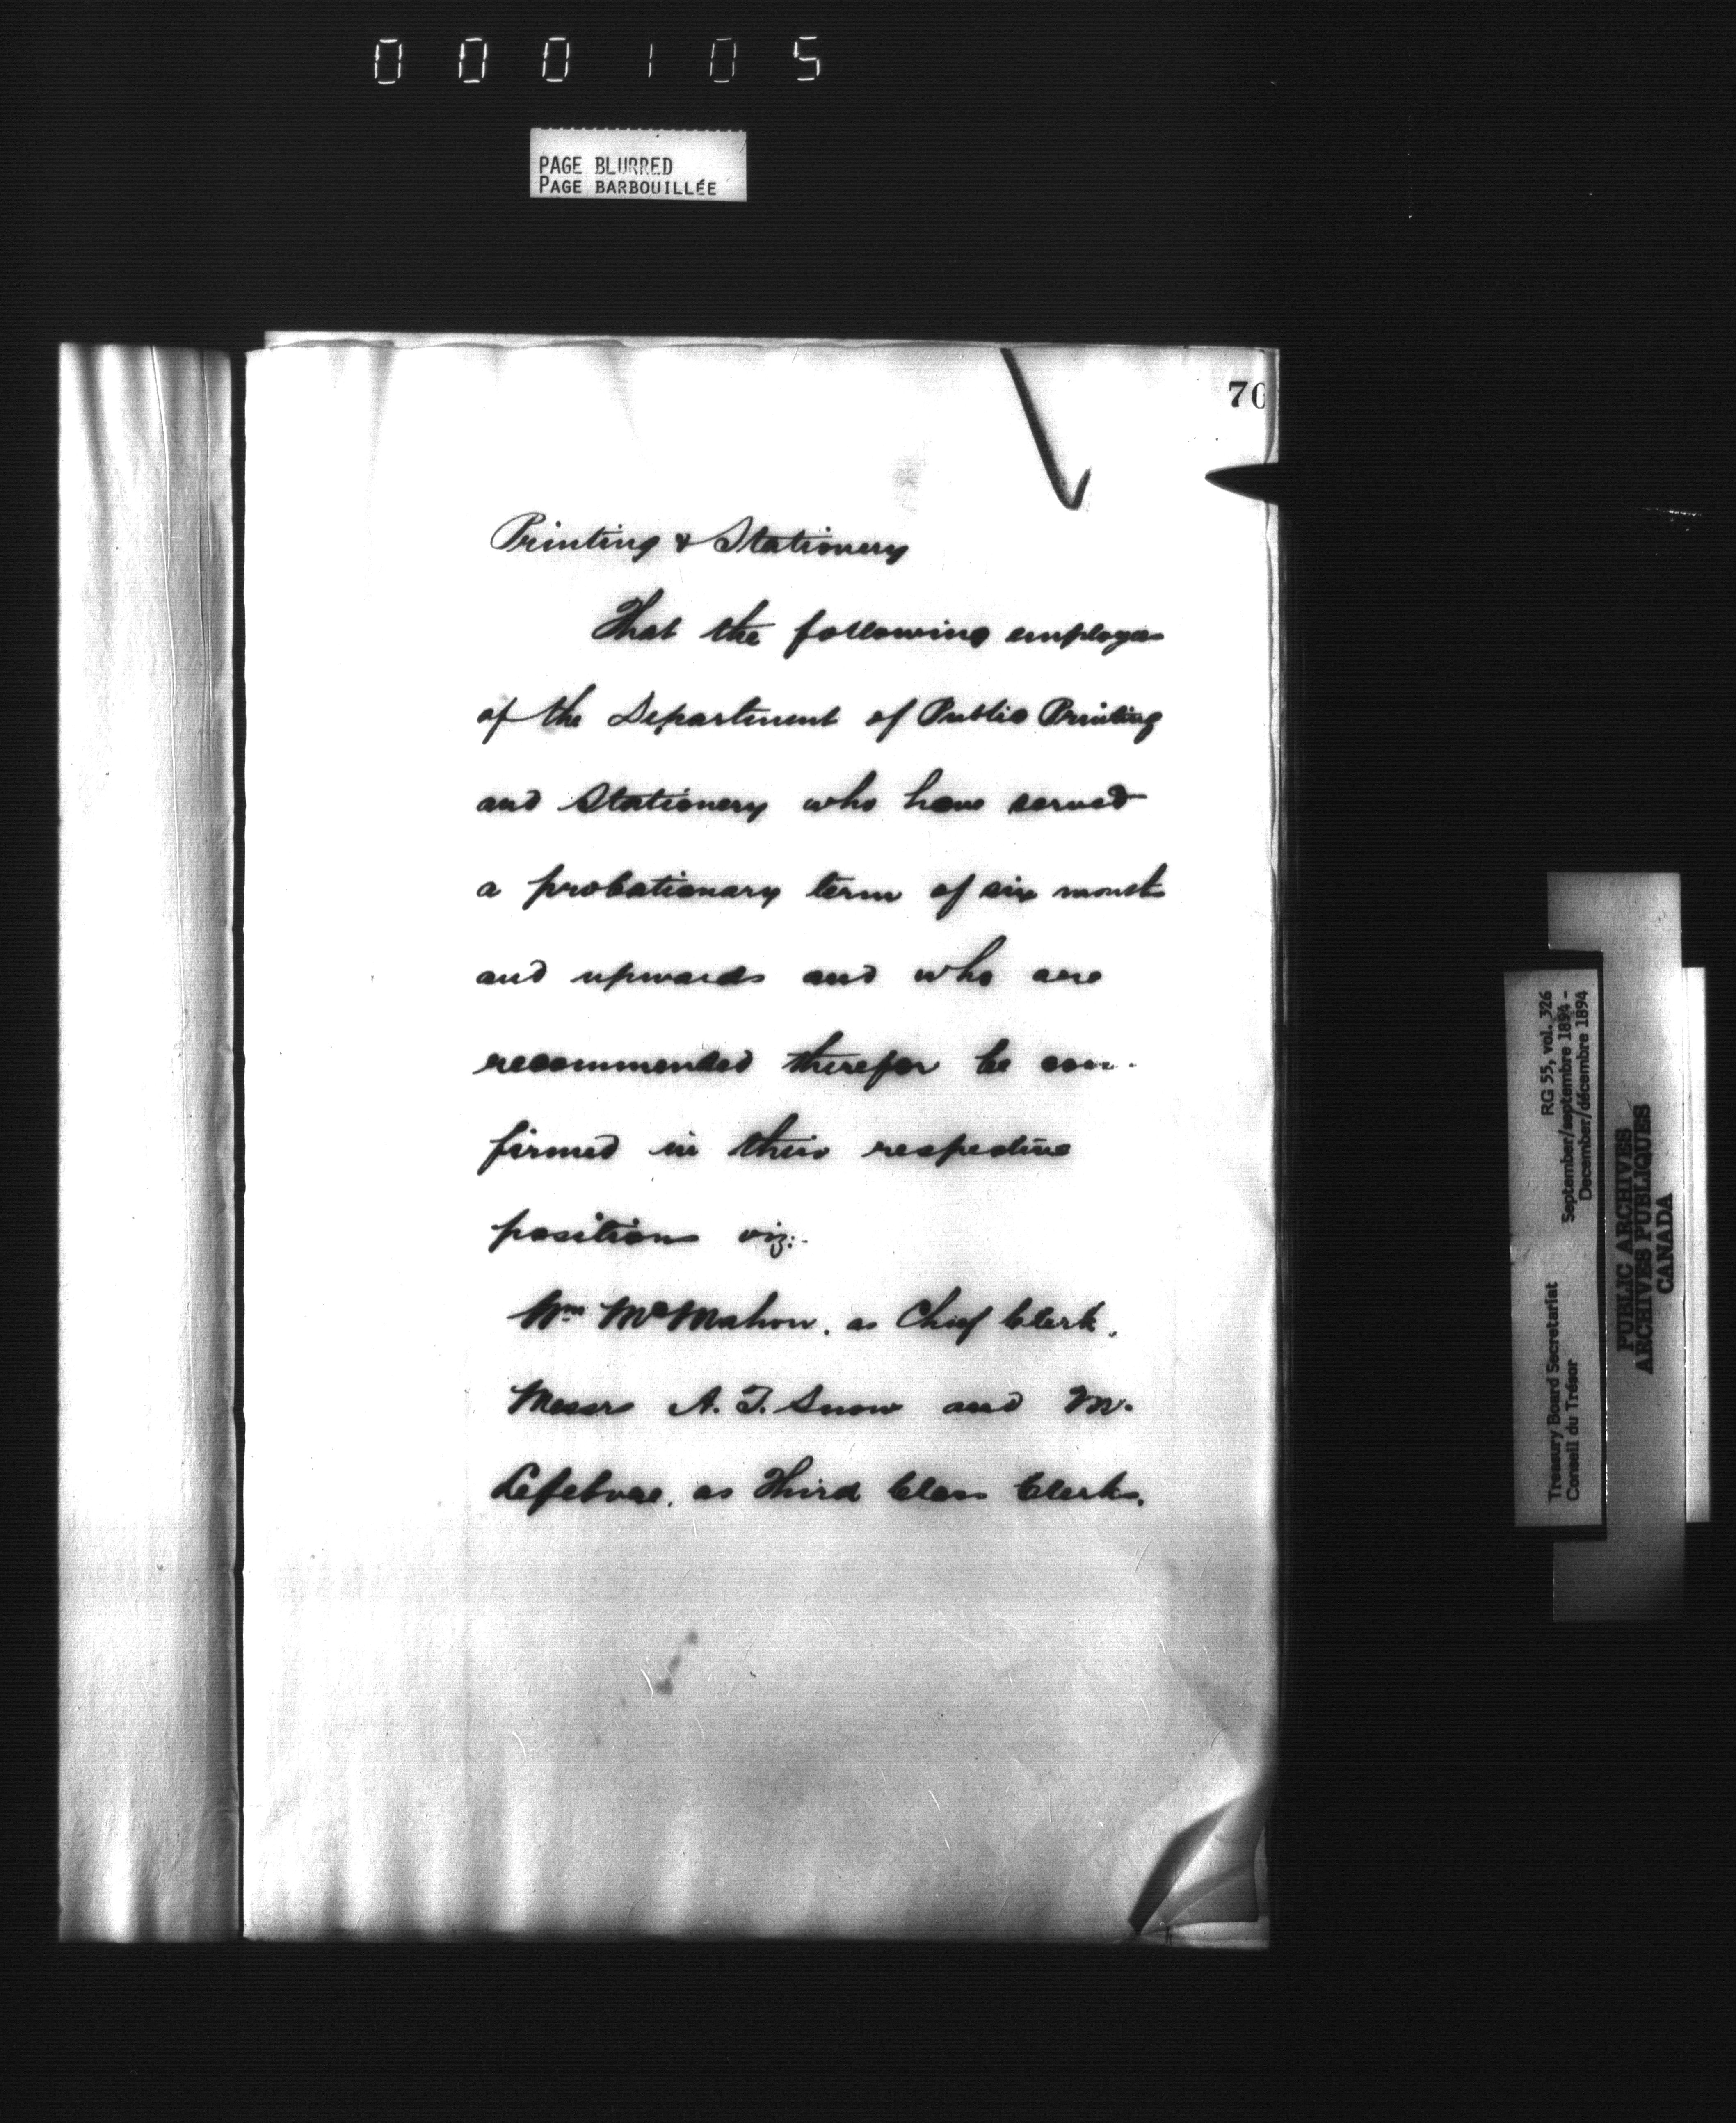 000105
PAGE BLURRED
PAGE BARBOUILLÉE
70
Printing & Stationery
That the following employees
of the Department of Public Printing
and Stationery who have served
a probationary term of six months
and upwards and who are
recommended therefor be con-
firmed in their respective
positions viz:-
Wm McMahon, as Chief Clerk,
Messrs A. T. Snow and M.
Lefebvre, as Third Class Clerks.
Treasury Board Secretariat RG 55, vol. 326
Conseil du Trésor September/septembre 1894 -
December/décembre 1894
PUBLIC ARCHIVES
ARCHIVES PUBLIQUES
CANADA